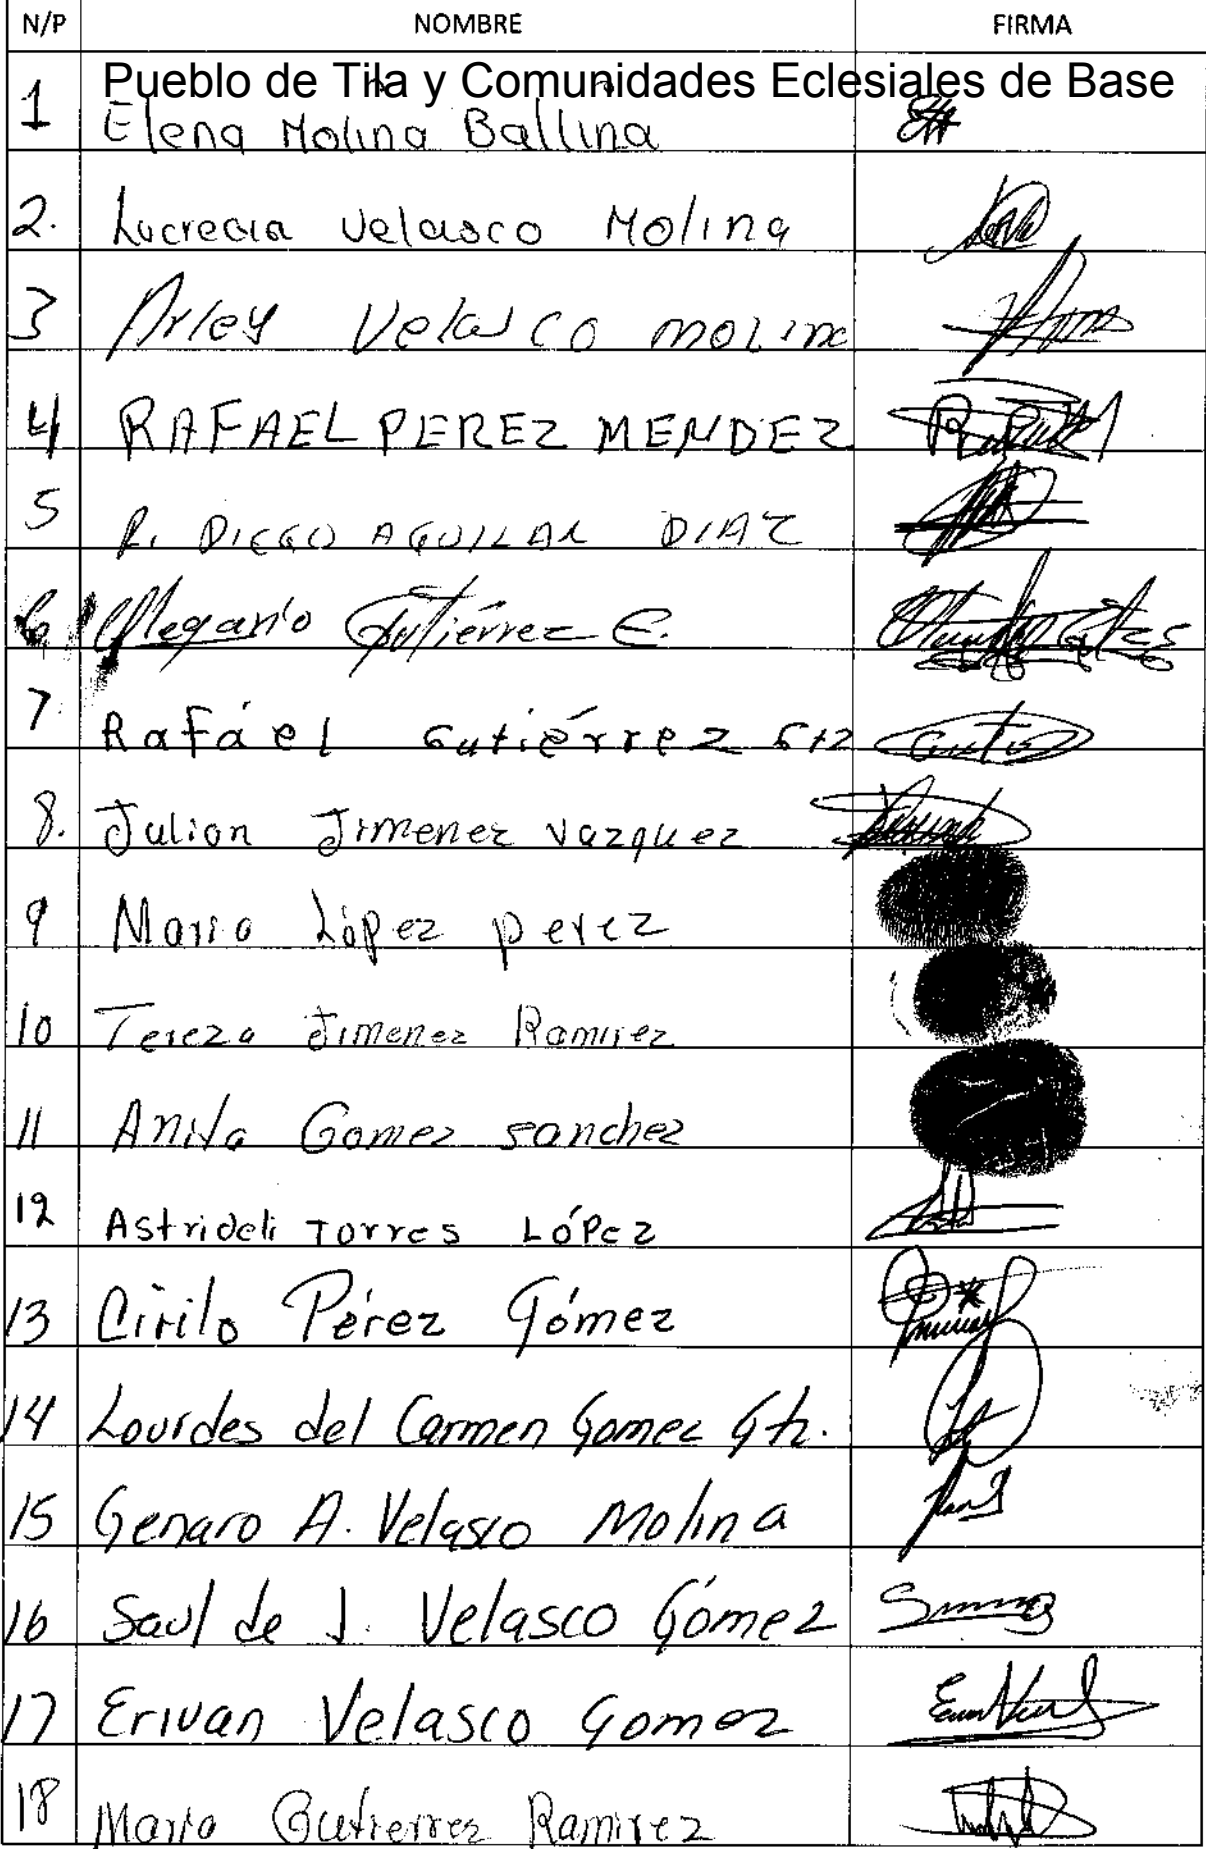 N/P NOMBRE FIRMA
Pueblo de Tila y Comunidades Eclesiales de Base
1 Elena Molina Ballina
2. Lucrecia Velasco Molina
3 Arley Velasco molina
4 RAFAEL PEREZ MENDEZ
5 R. DIEGO AGUILAR DIAZ
6 Olegario Gutiérrez E.
7. Rafáel Gutiérrez Gtz
8. Julian Jimenez Vazquez
9 Mario López perez
10 Tereza Jimenez Ramirez
11 Anita Gomez sanchez
12 Astrideli Torres López
13 Cirilo Pérez Gómez
14 Lourdes del Carmen Gomez Gtz.
15 Genaro A. Velasco Molina
16 Saul de J. Velasco Gómez
17 Erivan Velasco Gomez
18 Mario Gutierrez Ramirez